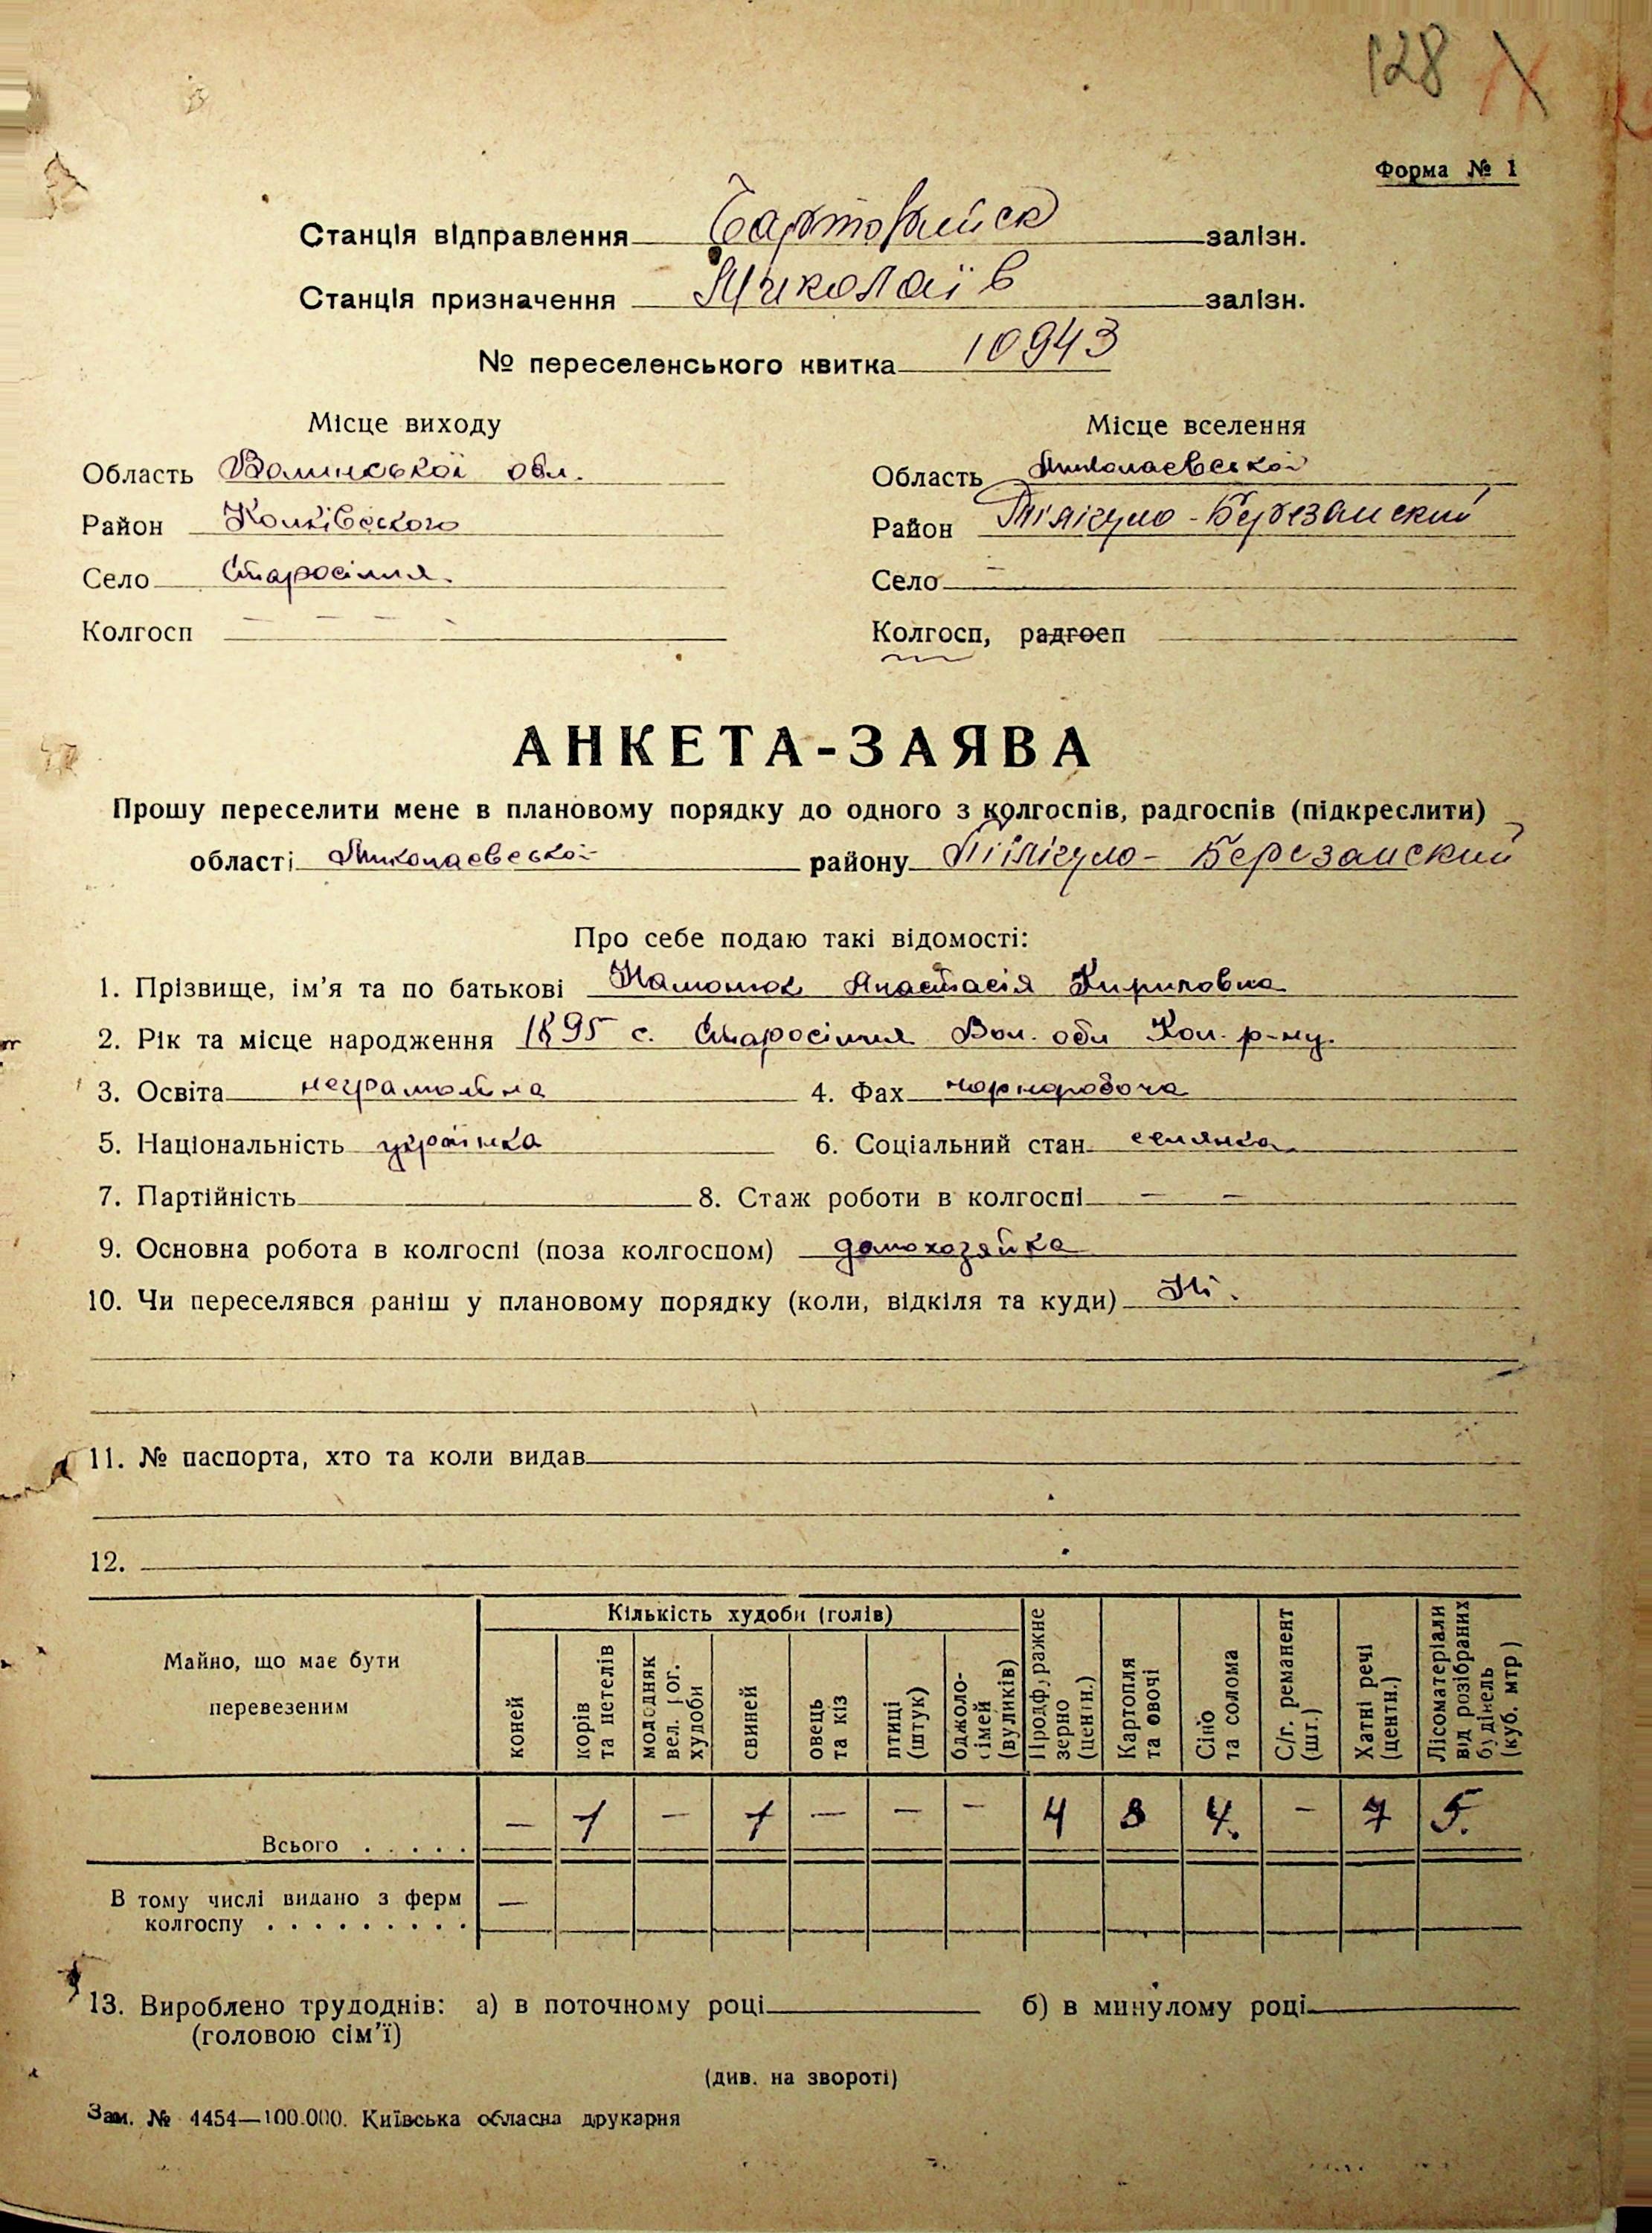 128
Форма № 1
Станція відправлення залізн.
Станція призначення Миколаїв залізн.
№ переселенського квитка 10943
Місце виходу Місце вселення
Область Волинської обл. Область Миколаевської
Район Колківського Район Тілігуло-Березанский
Село Старосілля. Село —
Колгосп — — — Колгосп, радгосп
АНКЕТА-ЗАЯВА
Прошу переселити мене в плановому порядку до одного з колгоспів, радгоспів (підкреслити)
області Миколаевської району Тілігуло-Березанский
Про себе подаю такі відомості:
1. Прізвище, ім'я та по батькові Анастасія Кириловна
2. Рік та місце народження 1895 с. Старосілля Вол. обл Кол. р-ну.
3. Освіта неграмотна 4. Фах чорноробоча
5. Національність українка 6. Соціальний стан селянка
7. Партійність 8. Стаж роботи в колгоспі — —
9. Основна робота в колгоспі (поза колгоспом) домохозяйка
10. Чи переселявся раніш у плановому порядку (коли, відкіля та куди) Ні.
11. № паспорта, хто та коли видав
12.
Майно, що має бути перевезеним
Кількість худоби (голів)
коней
корів та нетелів
молодняк вел. рог. худоби
свиней
овець та кіз
птиці (штук)
бджоло-сімей (вуликів)
Продфуражне зерно (центн.)
Картопля та овочі
Сіно та солома
С/г. реманент (шт.)
Хатні речі (центн.)
Лісоматеріали від розібраних будівель (куб. мтр)
Всього . . . . . — 1 — 1 — — — 4 8 4. — 7 5.
В тому числі видано з ферм
колгоспу . . . . . . . . . —
13. Вироблено трудоднів: а) в поточному році б) в минулому році
(головою сім'ї)
(див. на звороті)
Зам. № 4454—100.000. Київська обласна друкарня